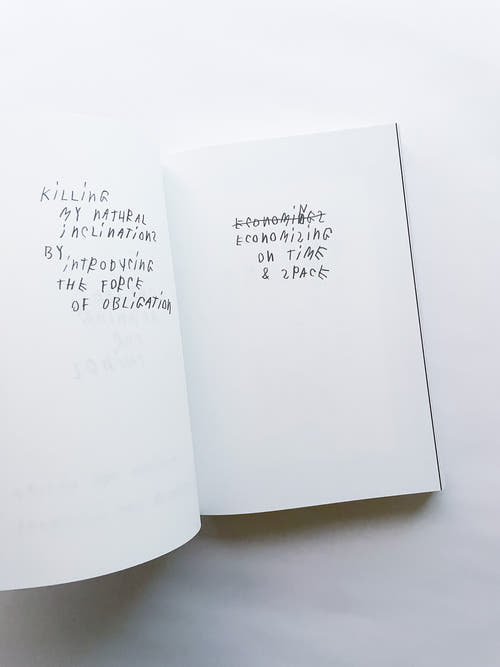 KiLLinG
MY nATURAL
inCLinATionS
BY inTRODUCinG
THE FORCE
OF OBLiGATion
EConoMiNGZ
EConoMiZinG
on TiME
& SPACE